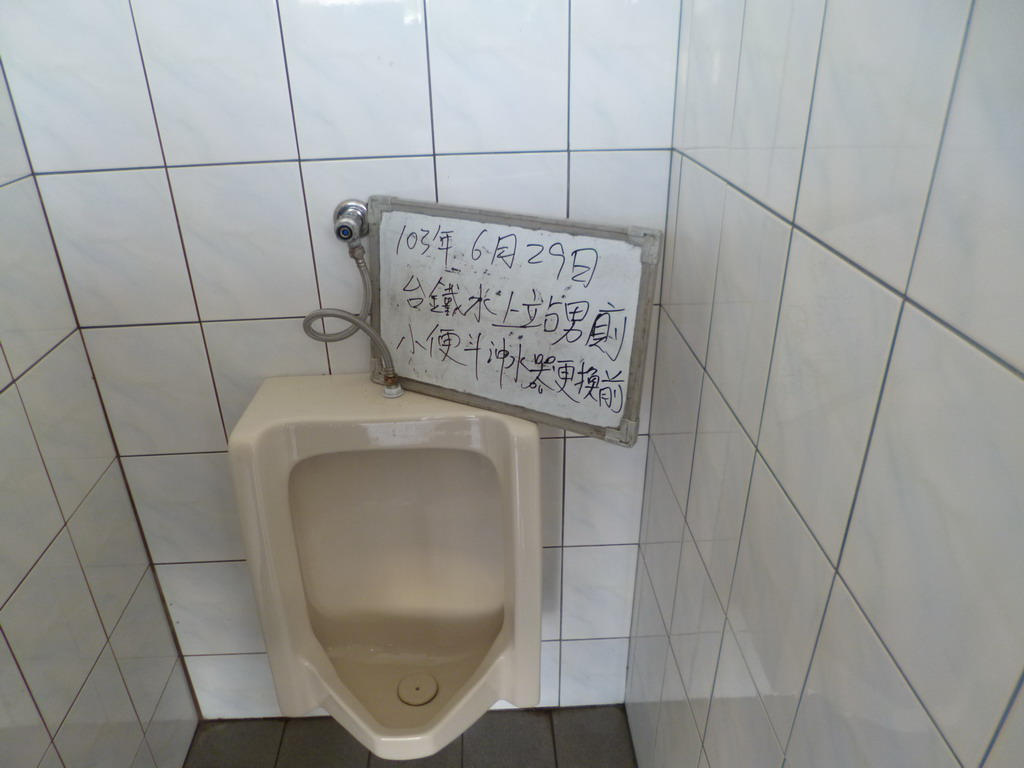 103年6月29日
台鐵水上站男廁
小便斗沖水器更換前